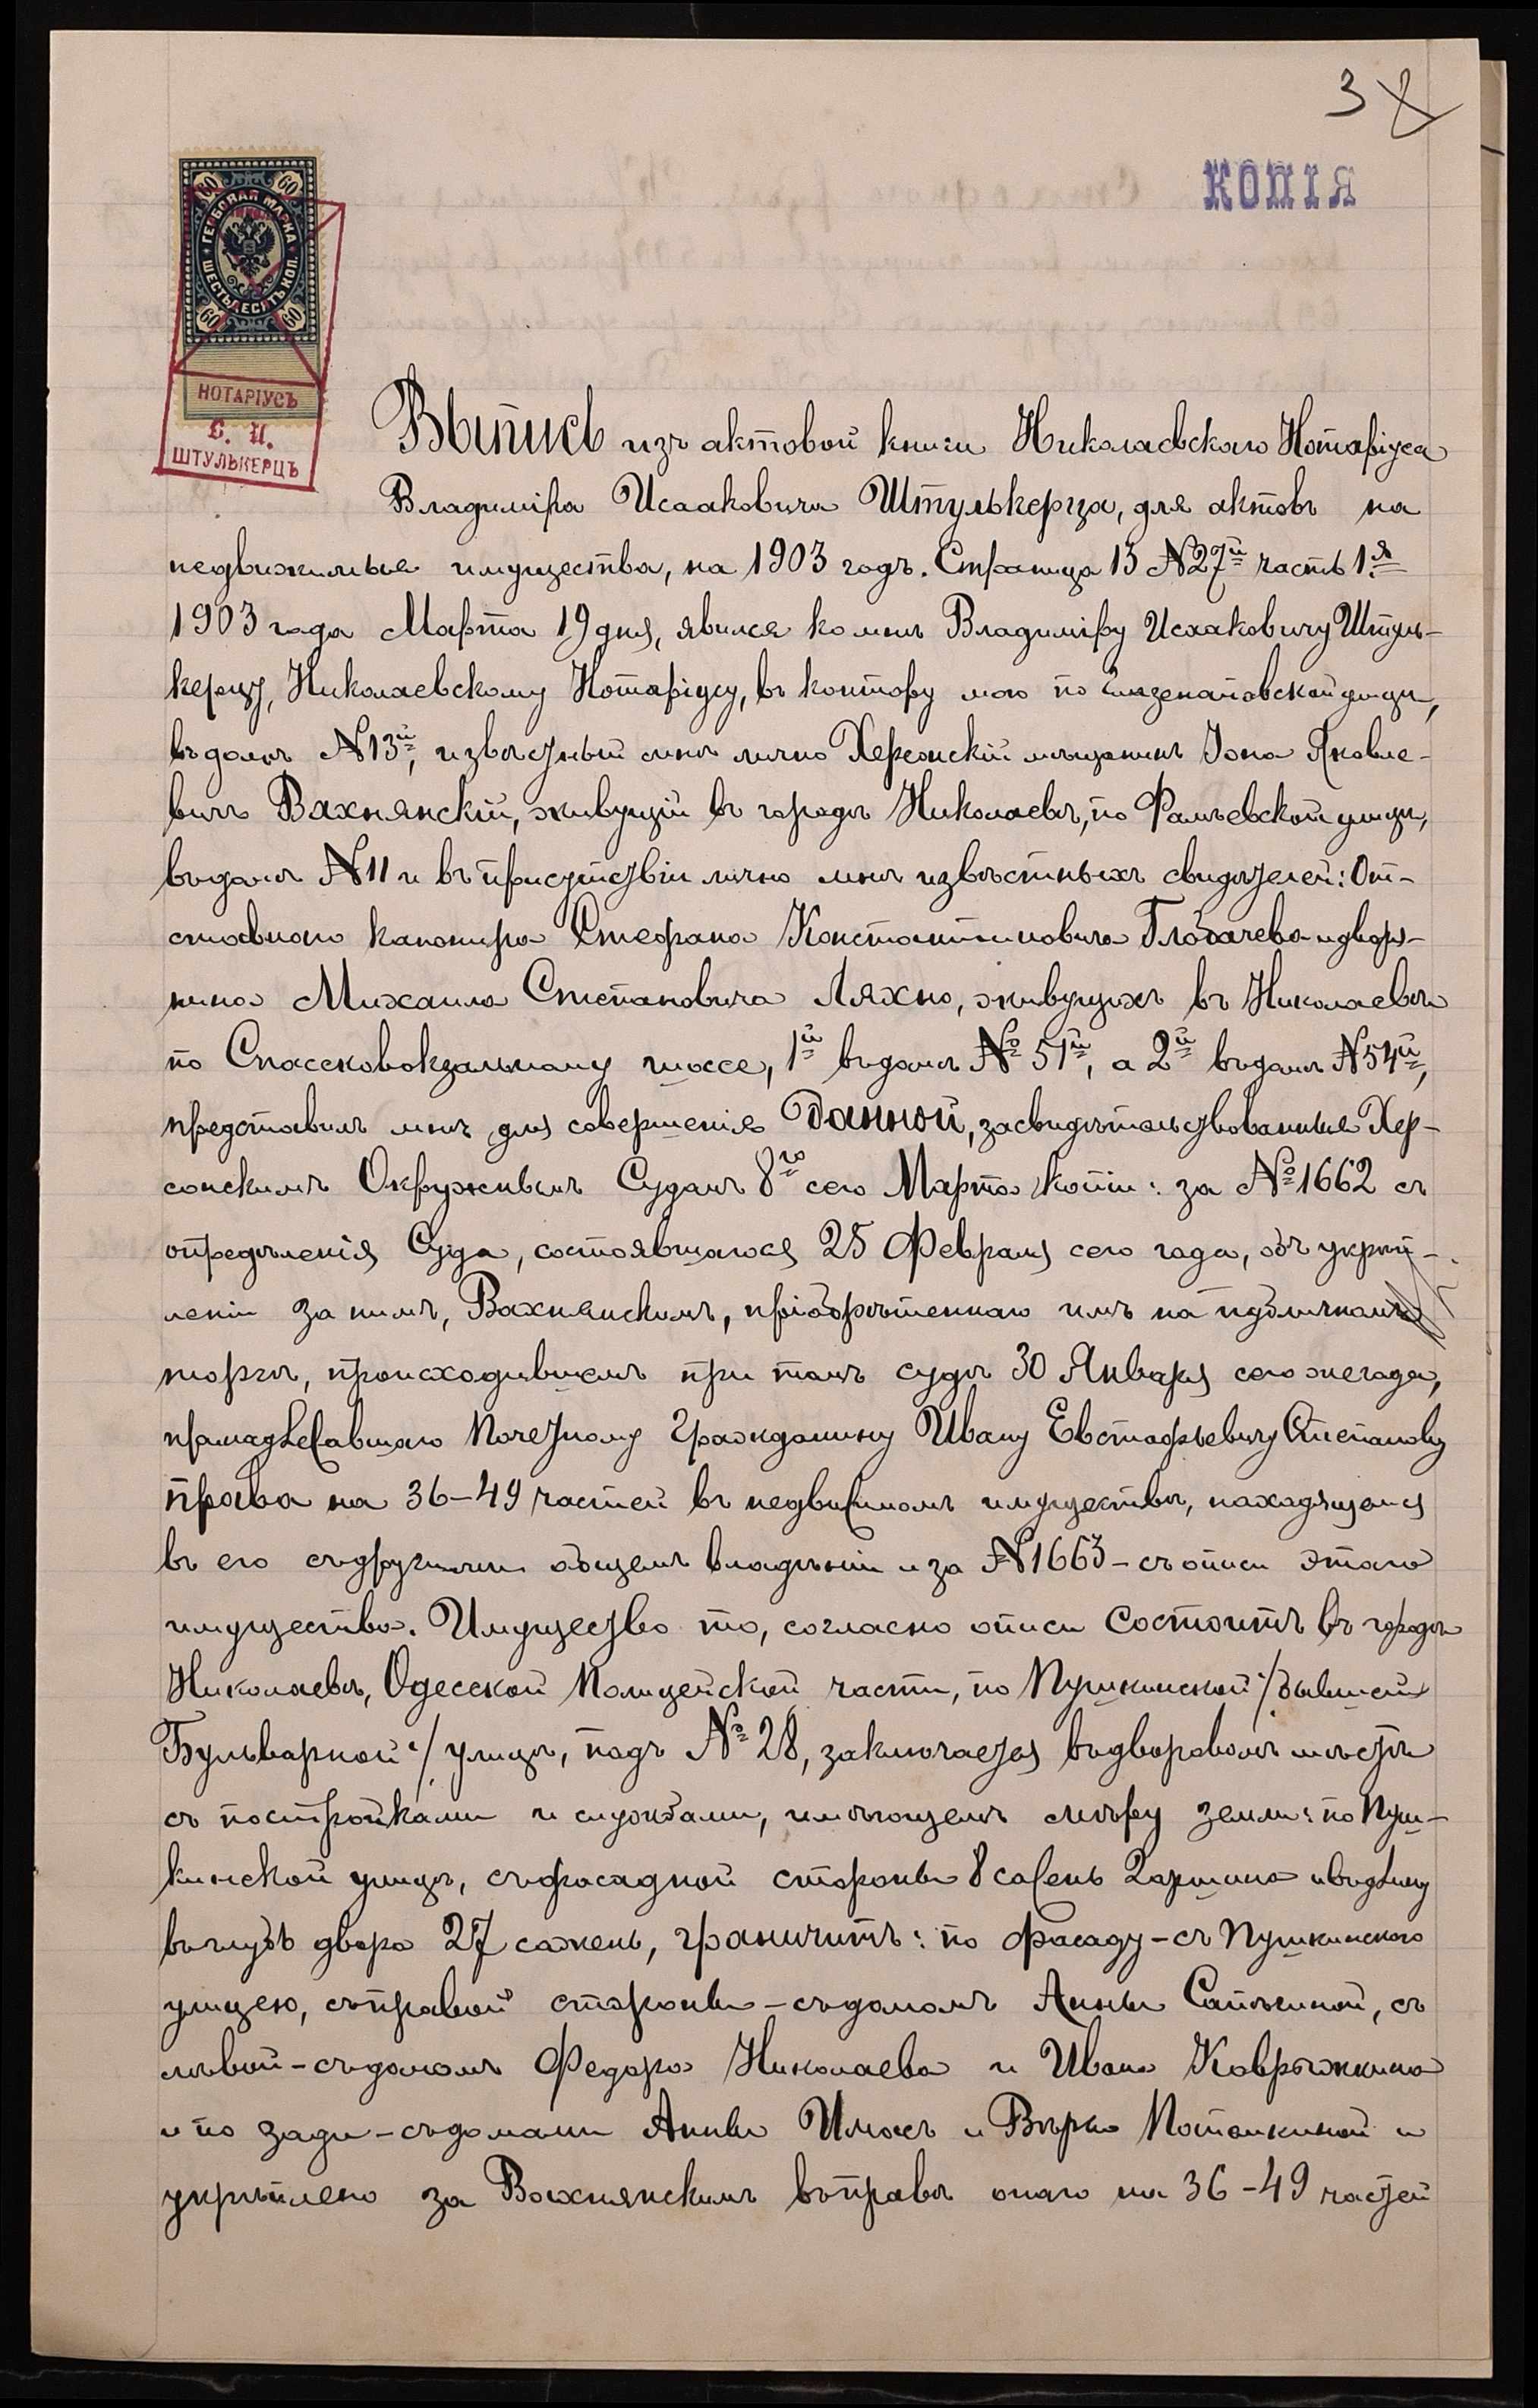 3
КОПІЯ
60 60
ГЕРБОВАЯ МАРКА
ШЕСТЬДЕСЯТЪ КОП.
60 60
НОТАРІУСЪ
В. И.
ШТУЛЬКЕРЦЪ
Выпись изъ актовой книги Николаевскаго Нотаріуса
Владиміра Исааковича Штулькерца, для актовъ на
недвижимыя имущества, на 1903 годъ. Страница 13 №27й часть 1я
1903 года Марта 19 дня, явился ко мнѣ Владиміру Исааковичу Штуль-
керцу, Николаевскому Нотаріусу, въ контору мою по улицѣ,
въ домѣ №13й, извѣстный мнѣ лично Херсонскій мѣщанинъ Іона Яковле-
вичъ Вахнянскій, живущій въ городѣ Николаевѣ, по Фалѣевской улицѣ,
въ домѣ №11 и въ присутствіи лично мнѣ извѣстныхъ свидѣтелей: От-
ставного канонира Стефана Константиновича Глобачева и дворя-
нина Михаила Степановича Ляхно, живущихъ въ Николаевѣ
по Спассковокзальному шоссе, 1й въ домѣ № 51й, а 2й въ домѣ №54й,
представилъ мнѣ для совершенія Данной, засвидѣтельствованныя Хер-
сонскимъ Окружнымъ Судомъ 8го сего Марта копіи: за №1662 съ
опредѣленія Суда, состоявшагося 25 Февраля сего года, объ укрѣп-
леніи за нимъ, Вахнянскимъ, пріобрѣтеннаго имъ на публичномъ
торгѣ, происходившемъ при томъ судѣ 30 Января сего же года,
принадлежавшаго Почетному Гражданину Ивану Евстафьевичу Степанову
права на 36-49 частей въ недвижимомъ имуществѣ, находящемся
въ его съ другими общемъ владѣніи и за №1663 - съ описи этого
имущества. Имущество то, согласно описи состоитъ въ городѣ
Николаевѣ, Одесской Полицейской части, по Пушкинской /бывшей
Бульварной/ улицѣ, подъ № 28, заключается въ дворовомъ мѣстѣ
съ постройками и службами, имѣющемъ мѣру земли: по Пуш-
кинской улицѣ, съ фасадной стороны 8 сажень 2 аршина и въ длину
въ глубь двора 27 сажень, граничитъ: по фасаду - съ Пушкинскою
улицею, съ правой стороны - съ домомъ Анны Сапѣгиной, съ
лѣвой - съ домомъ Федора Николаева и Ивана Коврыжкина
и по зади - съ домами Анны и Вѣры Потемкиной и
укрѣплено за Вахнянскимъ въ правѣ онаго на 36-49 частей